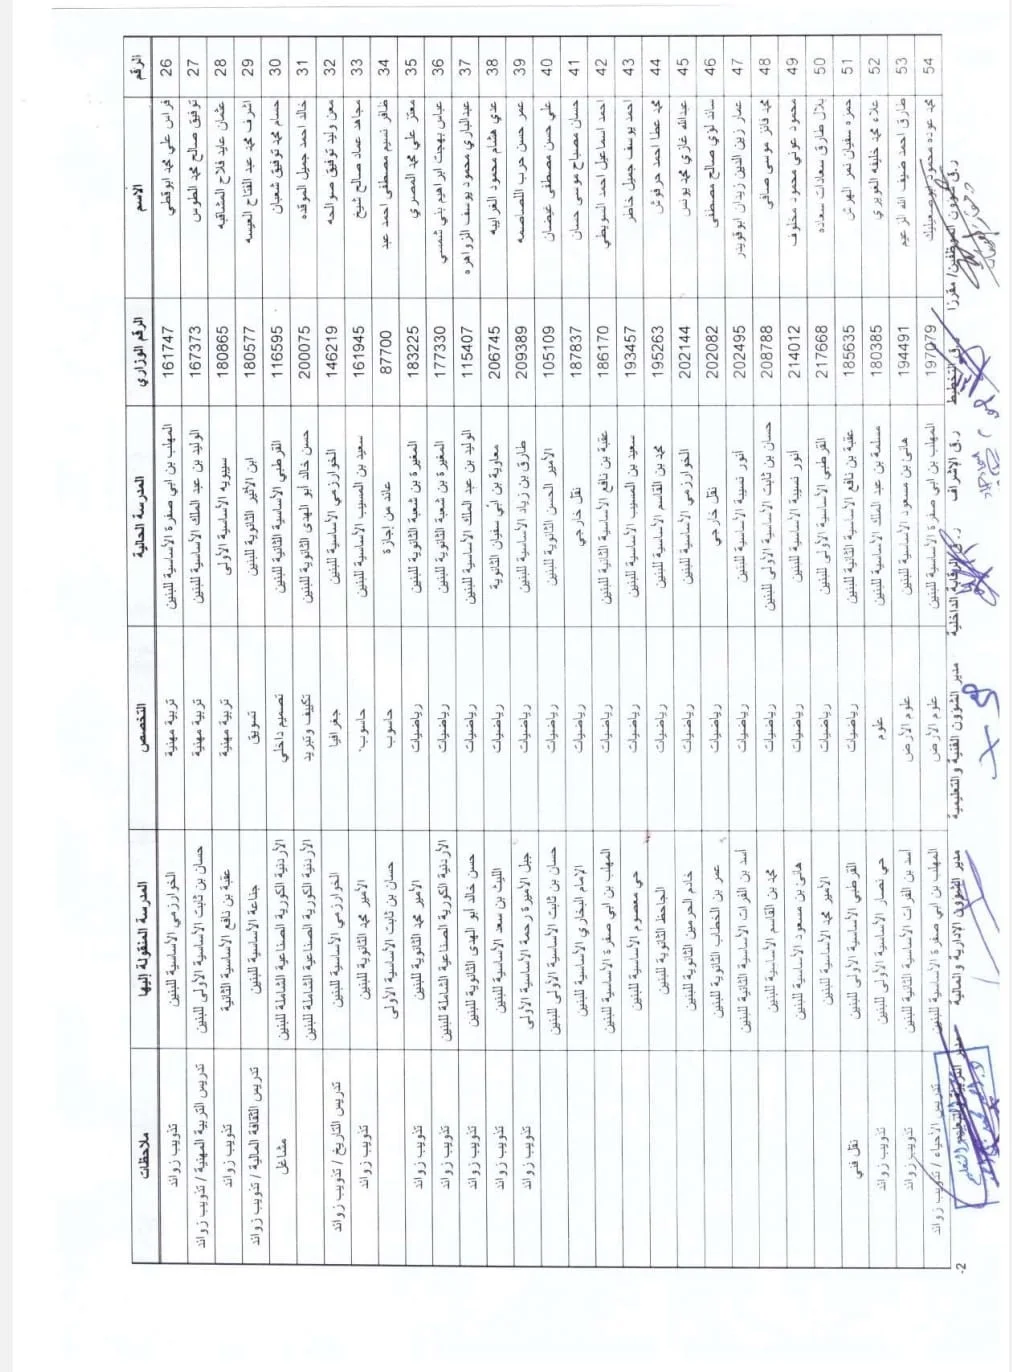 الرقم الاسم الرقم الوزاري المدرسة الحالية التخصص المدرسة المنقولة إليها ملاحظات
26 فراس علي محمد ابوقطي 161747 المهلب بن ابي صفرة الأساسية للبنين تربية مهنية الخوارزمي الأساسية للبنين تذويب زوائد
27 توفيق صالح محمد الطوس 167373 الوليد بن عبد الملك الأساسية للبنين تربية مهنية حسان بن ثابت الأساسية الأولى للبنين تدريس التربية المهنية / تذويب زوائد
28 عثمان عايد فلاح المشاقبه 180865 سيبويه الأساسية الأولى تربية مهنية عقبة بن نافع الأساسية الثانية تذويب زوائد
29 اشرف محمد عبد الفتاح العيسه 180577 ابن الأثير الثانوية للبنين تسويق جناعة الأساسية للبنين تدريس الثقافة المالية / تذويب زوائد
30 حسام محمد توفيق شعبان 116595 القرطبي الأساسية الثانية للبنين تصميم داخلي الأردنية الكورية الصناعية الشاملة للبنين مشاغل
31 خالد احمد جميل الموقده 200075 حسن خالد أبو الهدى الثانوية للبنين تكييف وتبريد الأردنية الكورية الصناعية الشاملة للبنين
32 معن وليد توفيق صوالحه 146219 الخوارزمي الأساسية للبنين جغرافيا الخوارزمي الأساسية للبنين تدريس التاريخ / تذويب زوائد
33 مجاهد عماد صالح شيخ 161945 سعيد بن المسيب الأساسية للبنين حاسوب الأمير محمد الثانوية للبنين تذويب زوائد
34 ظافر نسيم مصطفى احمد عيد 87700 عائد من إجازة حاسوب حسان بن ثابت الأساسية الأولى
35 معتز علي محمد المصري 183225 المغيرة بن شعبة الثانوية للبنين رياضيات الأمير محمد الثانوية للبنين تذويب زوائد
36 عباس بهجت ابراهيم بني شمسي 177330 المغيرة بن شعبة الثانوية للبنين رياضيات الأردنية الكورية الصناعية الشاملة للبنين تذويب زوائد
37 عبدالباري محمود يوسف الزواهره 115407 الوليد بن عبد الملك الأساسية للبنين رياضيات حسن خالد أبو الهدى الثانوية للبنين تذويب زوائد
38 عدي هشام محمود الغرايبه 206745 معاوية بن ابي سفيان الثانوية رياضيات الليث بن سعد الأساسية للبنين تذويب زوائد
39 عمر حسن حرب اللصاصمه 209389 طارق بن زياد الأساسية للبنين رياضيات جبل الأميرة رحمة الأساسية الأولى تذويب زوائد
40 علي حسن مصطفى غيضان 105109 الأمير الحسن الثانوية للبنين رياضيات حسان بن ثابت الأساسية الأولى للبنين
41 حسان مصباح موسى حسان 187837 نقل خارجي رياضيات الإمام البخاري الأساسية للبنين
42 احمد اسماعيل احمد السويطي 186170 عقبة بن نافع الأساسية الثانية للبنين رياضيات المهلب بن ابي صفرة الأساسية للبنين
43 احمد يوسف جميل خاطر 193457 سعيد بن المسيب الأساسية للبنين رياضيات حي معصوم الأساسية للبنين
44 محمد عطا احمد حرفوش 195263 محمد بن القاسم الأساسية للبنين رياضيات الجاحظ الثانوية للبنين
45 عبدالله غازي محمد يونس 202144 الخوارزمي الأساسية للبنين رياضيات خادم الحرمين الثانوية للبنين
46 سائد لؤي صالح مصطفى 202082 نقل خارجي رياضيات عمر بن الخطاب الثانوية للبنين
47 عمار زين الدين زيدان ابوقويدر 202495 أنور نسيبة الأساسية للبنين رياضيات أسد بن الفرات الأساسية الثانية للبنين
48 محمد فائز موسى صافي 208788 حسان بن ثابت الأساسية الأولى للبنين رياضيات محمد بن القاسم الأساسية للبنين
49 محمود عوني محمود مخلوف 214012 أنور نسيبة الأساسية للبنين رياضيات هانئ بن مسعود الأساسية للبنين
50 بلال طارق سعادات سعاده 217668 القرطبي الأساسية الأولى للبنين رياضيات الأمير محمد الأساسية للبنين
51 حمزه سفيان نمر الهرش 185635 عقبة بن نافع الأساسية الثانية للبنين رياضيات القرطبي الأساسية الأولى للبنين نقل فني
52 علاء محمد خليفه العويري 180385 مسلمة بن عبد الملك الأساسية للبنين علوم حي نصار الأساسية الأولى للبنين تذويب زوائد
53 طارق احمد ضيف الله الزعيم 194491 هانئ بن مسعود الأساسية للبنين علوم الأرض أسد بن الفرات الأساسية الثانية للبنين تذويب زوائد
54 محمد عوده محمود ابوصعيليك 197079 المهلب بن ابي صفرة الأساسية للبنين علوم الأرض المهلب بن ابي صفرة الأساسية للبنين تدريس الأحياء / تذويب زوائد
ر.ق شؤون الموظفين/ مقررا ر.ق التخطيط ر.ق الإشراف ر.ق الرقابة الداخلية مدير الشؤون الفنية والتعليمية مدير الشؤون الإدارية والمالية مدير التربية والتعليم
2-